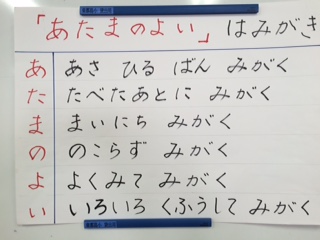 「あたまのよい」はみがき
あ あさ ひる ばん みがく
た たべたあとに みがく
ま まいにち みがく
の のこらず みがく
よ よくみて みがく
い いろいろ くふうして みがく